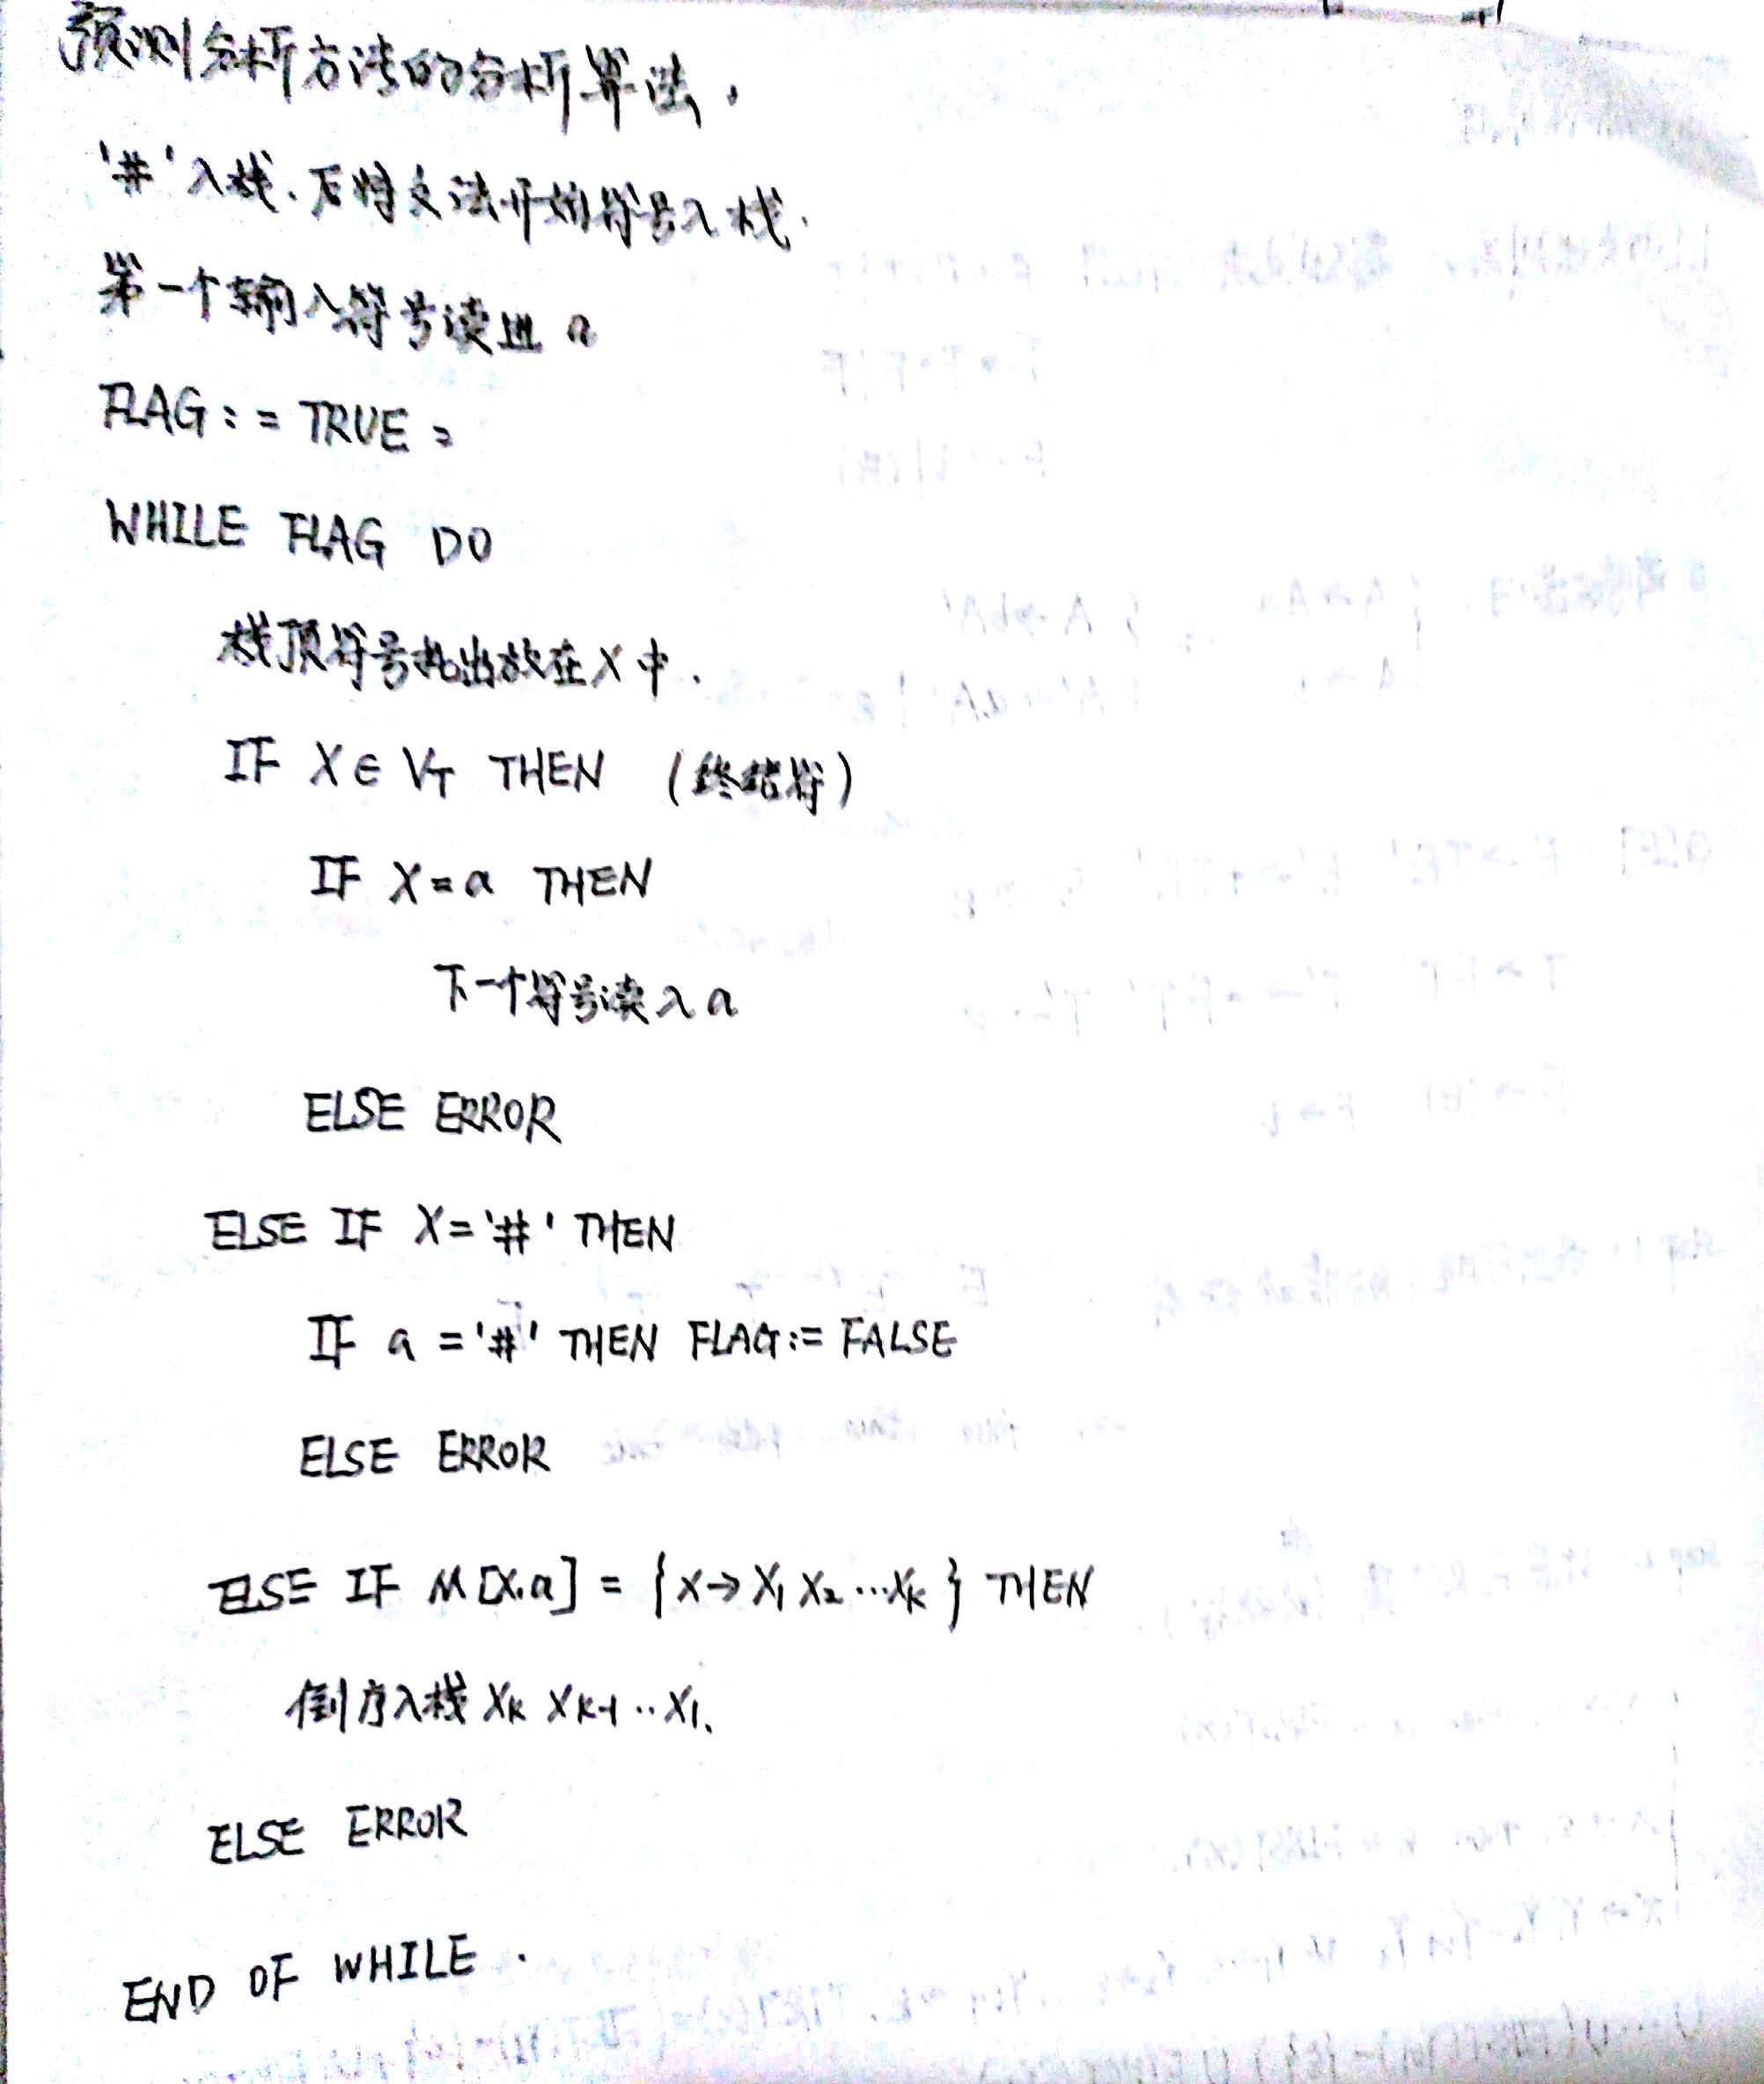 预测分析方法的分析算法.
'#'入栈.后将文法开始符号入栈.
第一个输入符号读进 a
FLAG:= TRUE;
WHILE FLAG DO
栈顶符号托出放在X中.
IF X∈VT THEN (终结符)
IF X=a THEN
下一个符号读入a
ELSE ERROR
ELSE IF X='#' THEN
IF a='#' THEN FLAG:= FALSE
ELSE ERROR
ELSE IF M[X.a] = {X→X1 X2…Xk} THEN
倒序入栈 Xk Xk-1..X1.
ELSE ERROR
END OF WHILE.